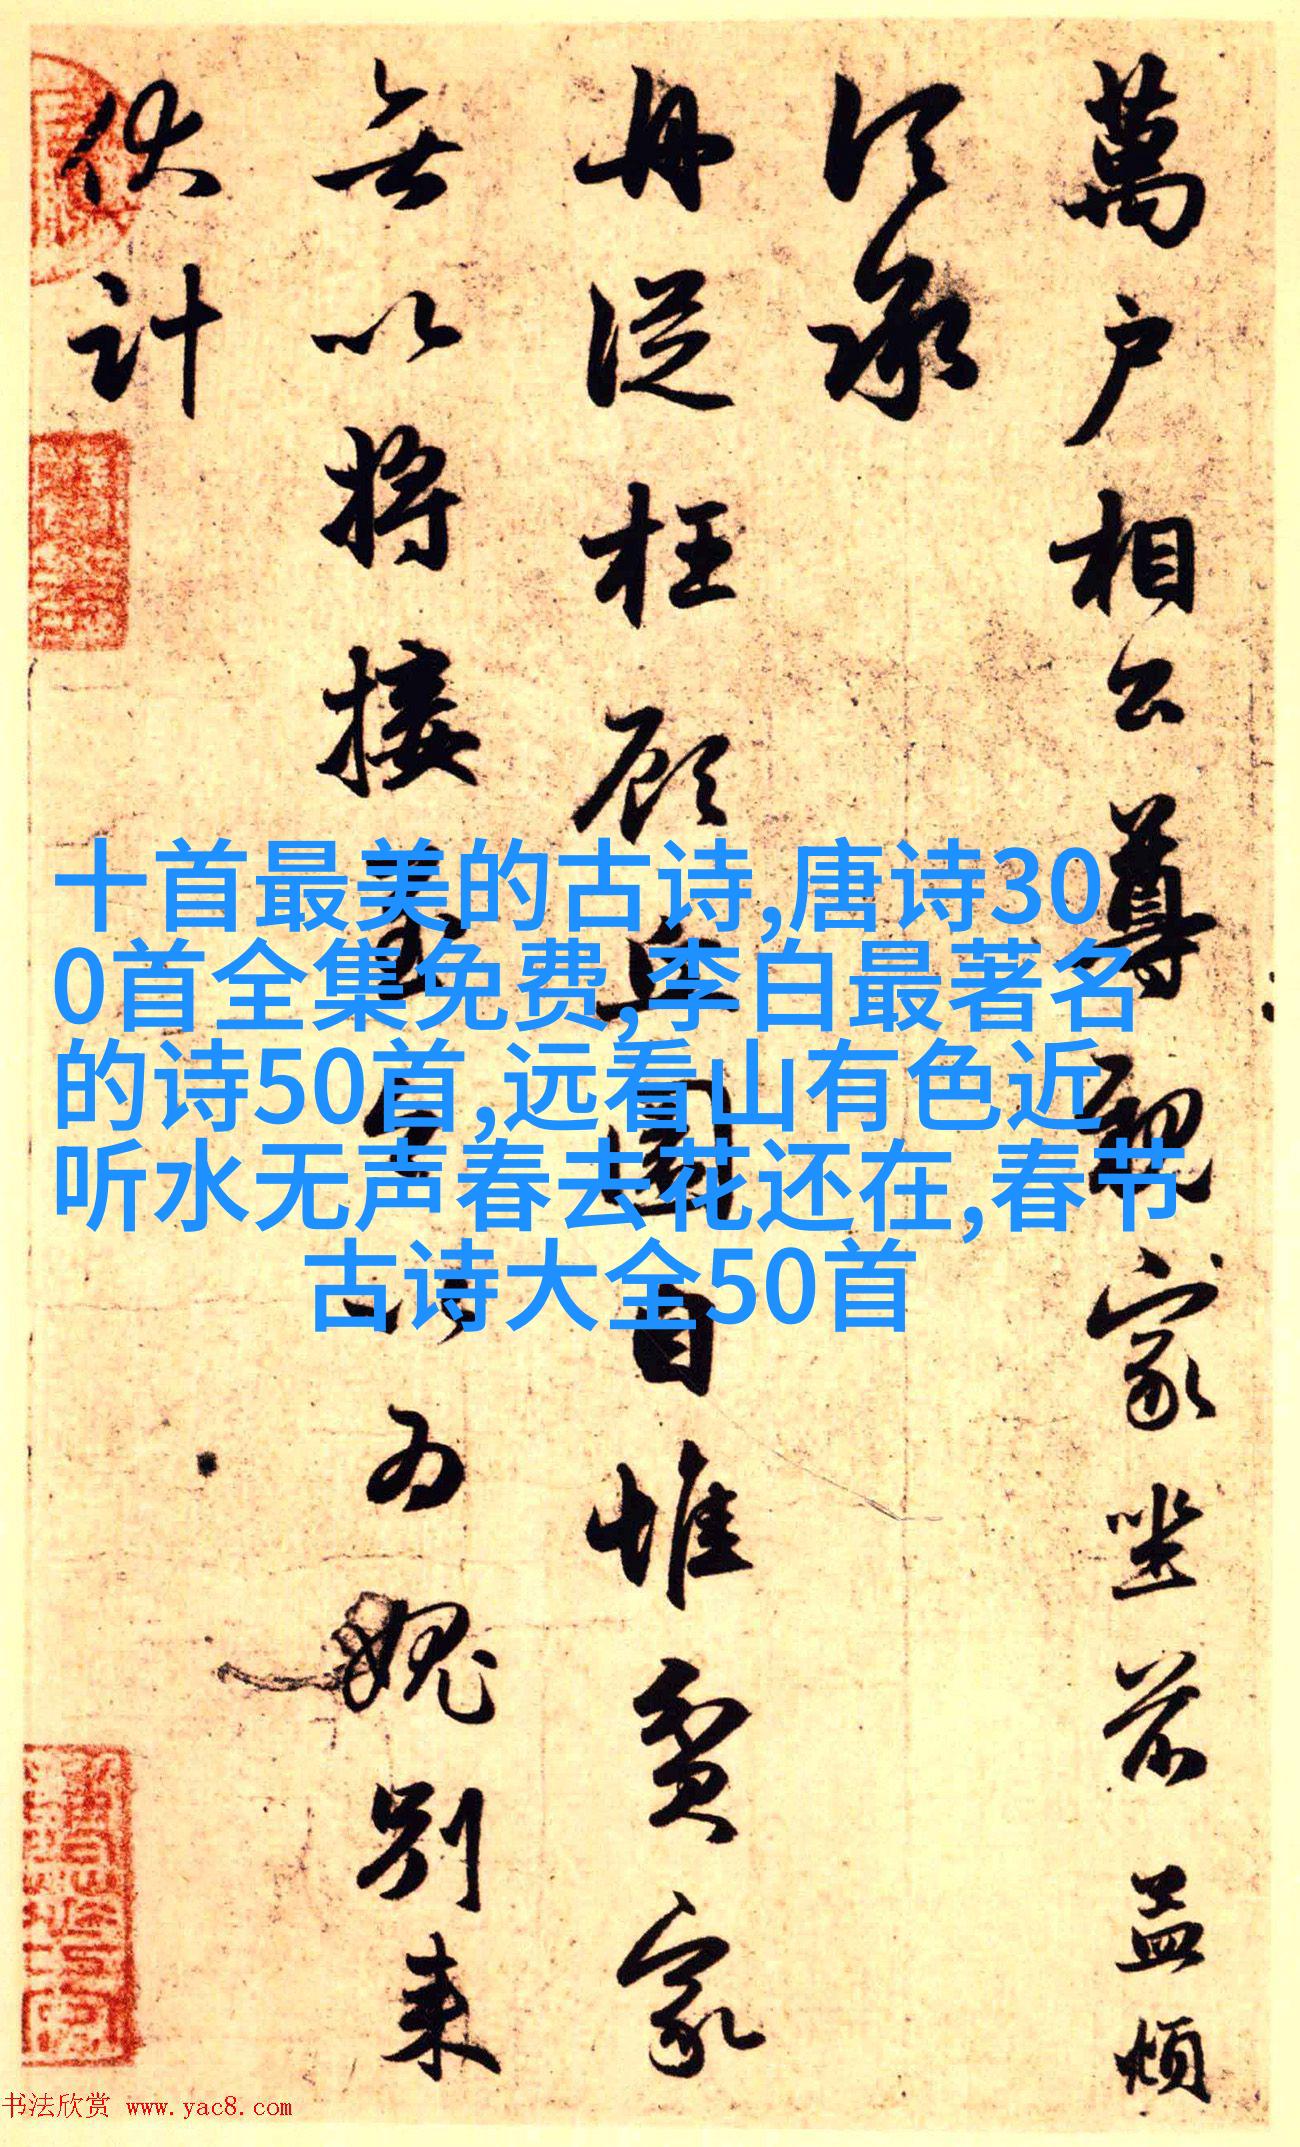 萬户相公尊親家坐前益煩
承
再從枉顧丘園自惟貧家
無以將接以为愧别来
伏計
十首最美的古诗,唐诗30
0首全集免费,李白最著名
的诗50首,远看山有色近
听水无声春去花还在,春节
古诗大全50首
书法欣赏 www.yac8.com